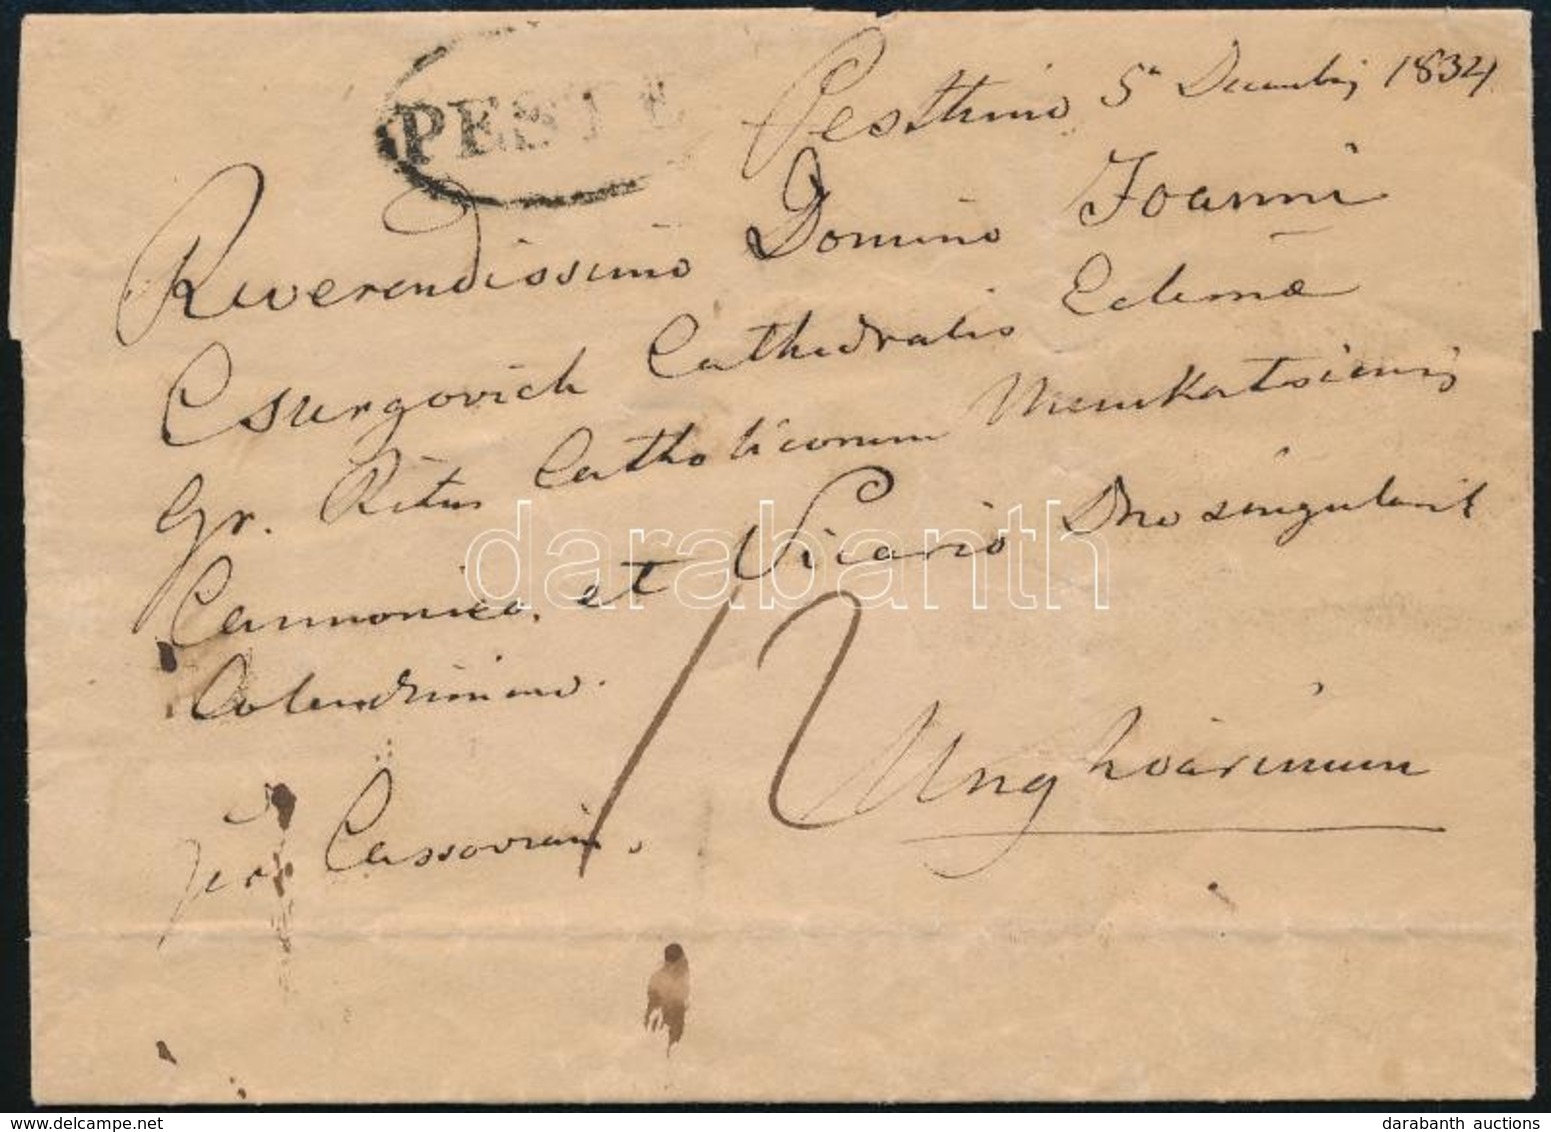 PESTH
Pesthino 5a Decembris 1834
Reverendissimo Domino Joanni
Csurgovich Cathedralis Eclesiæ
Gr. Ritus Catholicorum Munkatsiensis
Cannonico, et Vicario Dno singulariter
Colendissimo.
12
Unghvarinum
per Cassoviam.
darabanth
darabanth auctions